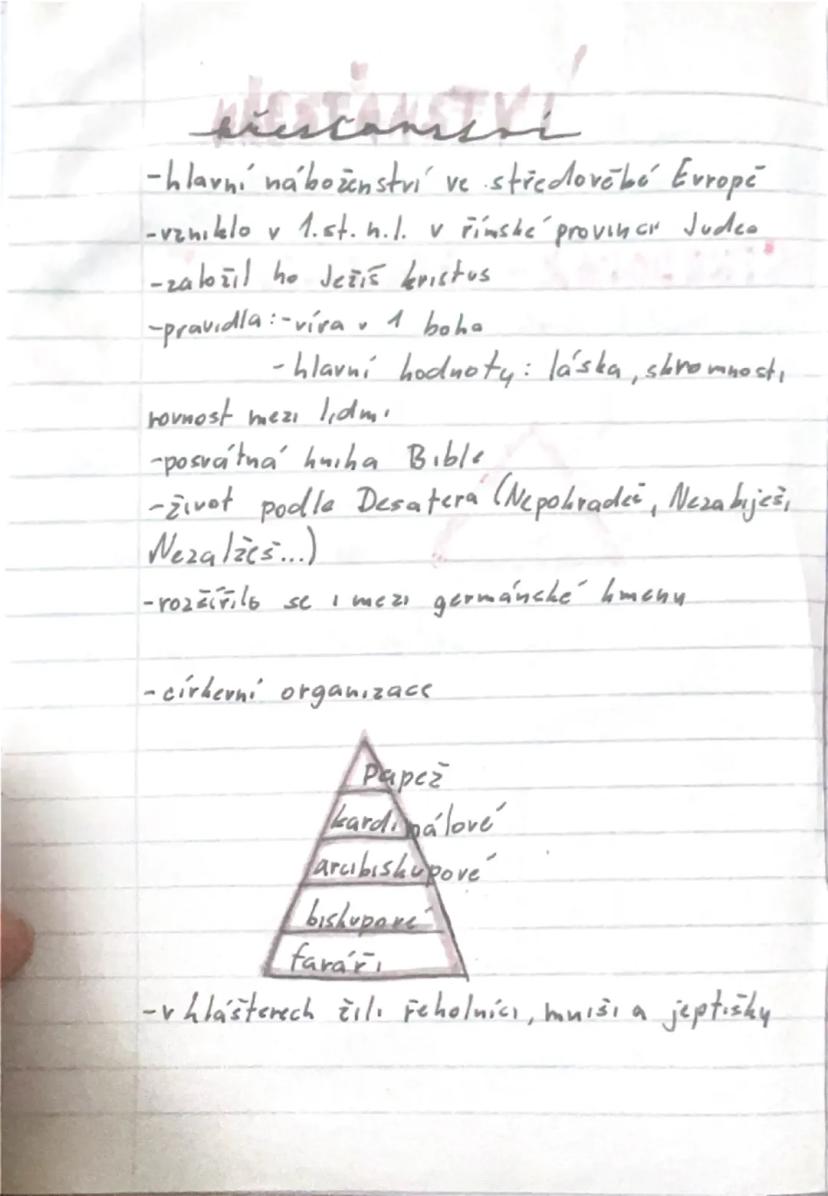 křesťanství
-hlavní náboženství ve středověké Evropě
-vzniklo v 1.st. n.l. v římské provincii Judea
-založil ho Ježíš kristus
-pravidla:-víra v 1 boha
-hlavní hodnoty: láska, skromnost,
rovnost mezi lidmi
-posvátná kniha Bible
-život podle Desatera (Nepokradeš, Nezabiješ,
Nezalžeš...)
-rozšířilo se i mezi germánské kmeny
-církevní organizace
Papež
kardinálové
arcibiskupové
biskupové
faráři
-v klášterech žili řeholníci, mniši a jeptišky